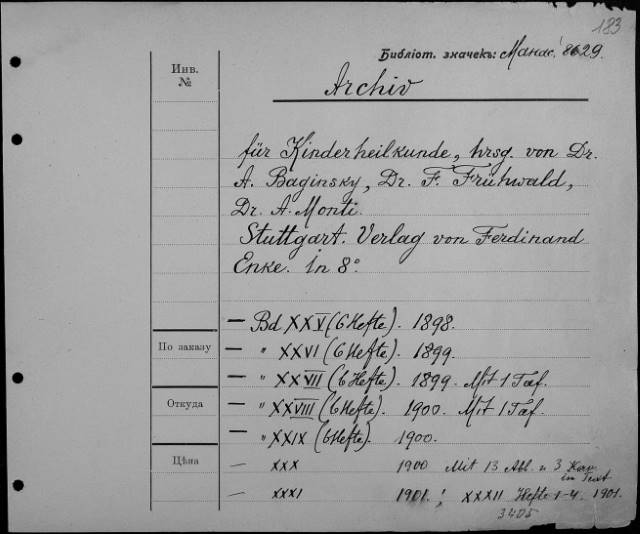 183
Бібліот. значекъ: Манас. 8629.
Инв.
№
Archiv
für Kinderheilkunde, hrsg. von Dr.
A. Baginsky, Dr. F. Frühwald,
Dr. A. Monti.
Stuttgart. Verlag von Ferdinand
Enke. in 8°.
— Bd XXV (6 Hefte). 1898.
По заказу
— " XXVI (6 Hefte). 1899.
— " XXVII (6 Hefte). 1899. Mit 1 Taf.
Откуда
— " XXVIII (6 Hefte). 1900. Mit 1 Taf.
— " XXIX (6 Hefte). 1900.
Цѣна
— XXX 1900 Mit 13 Abb. u 3
im Text
— XXXI 1901.; XXXII Hefte 1-4. 1901.
3405